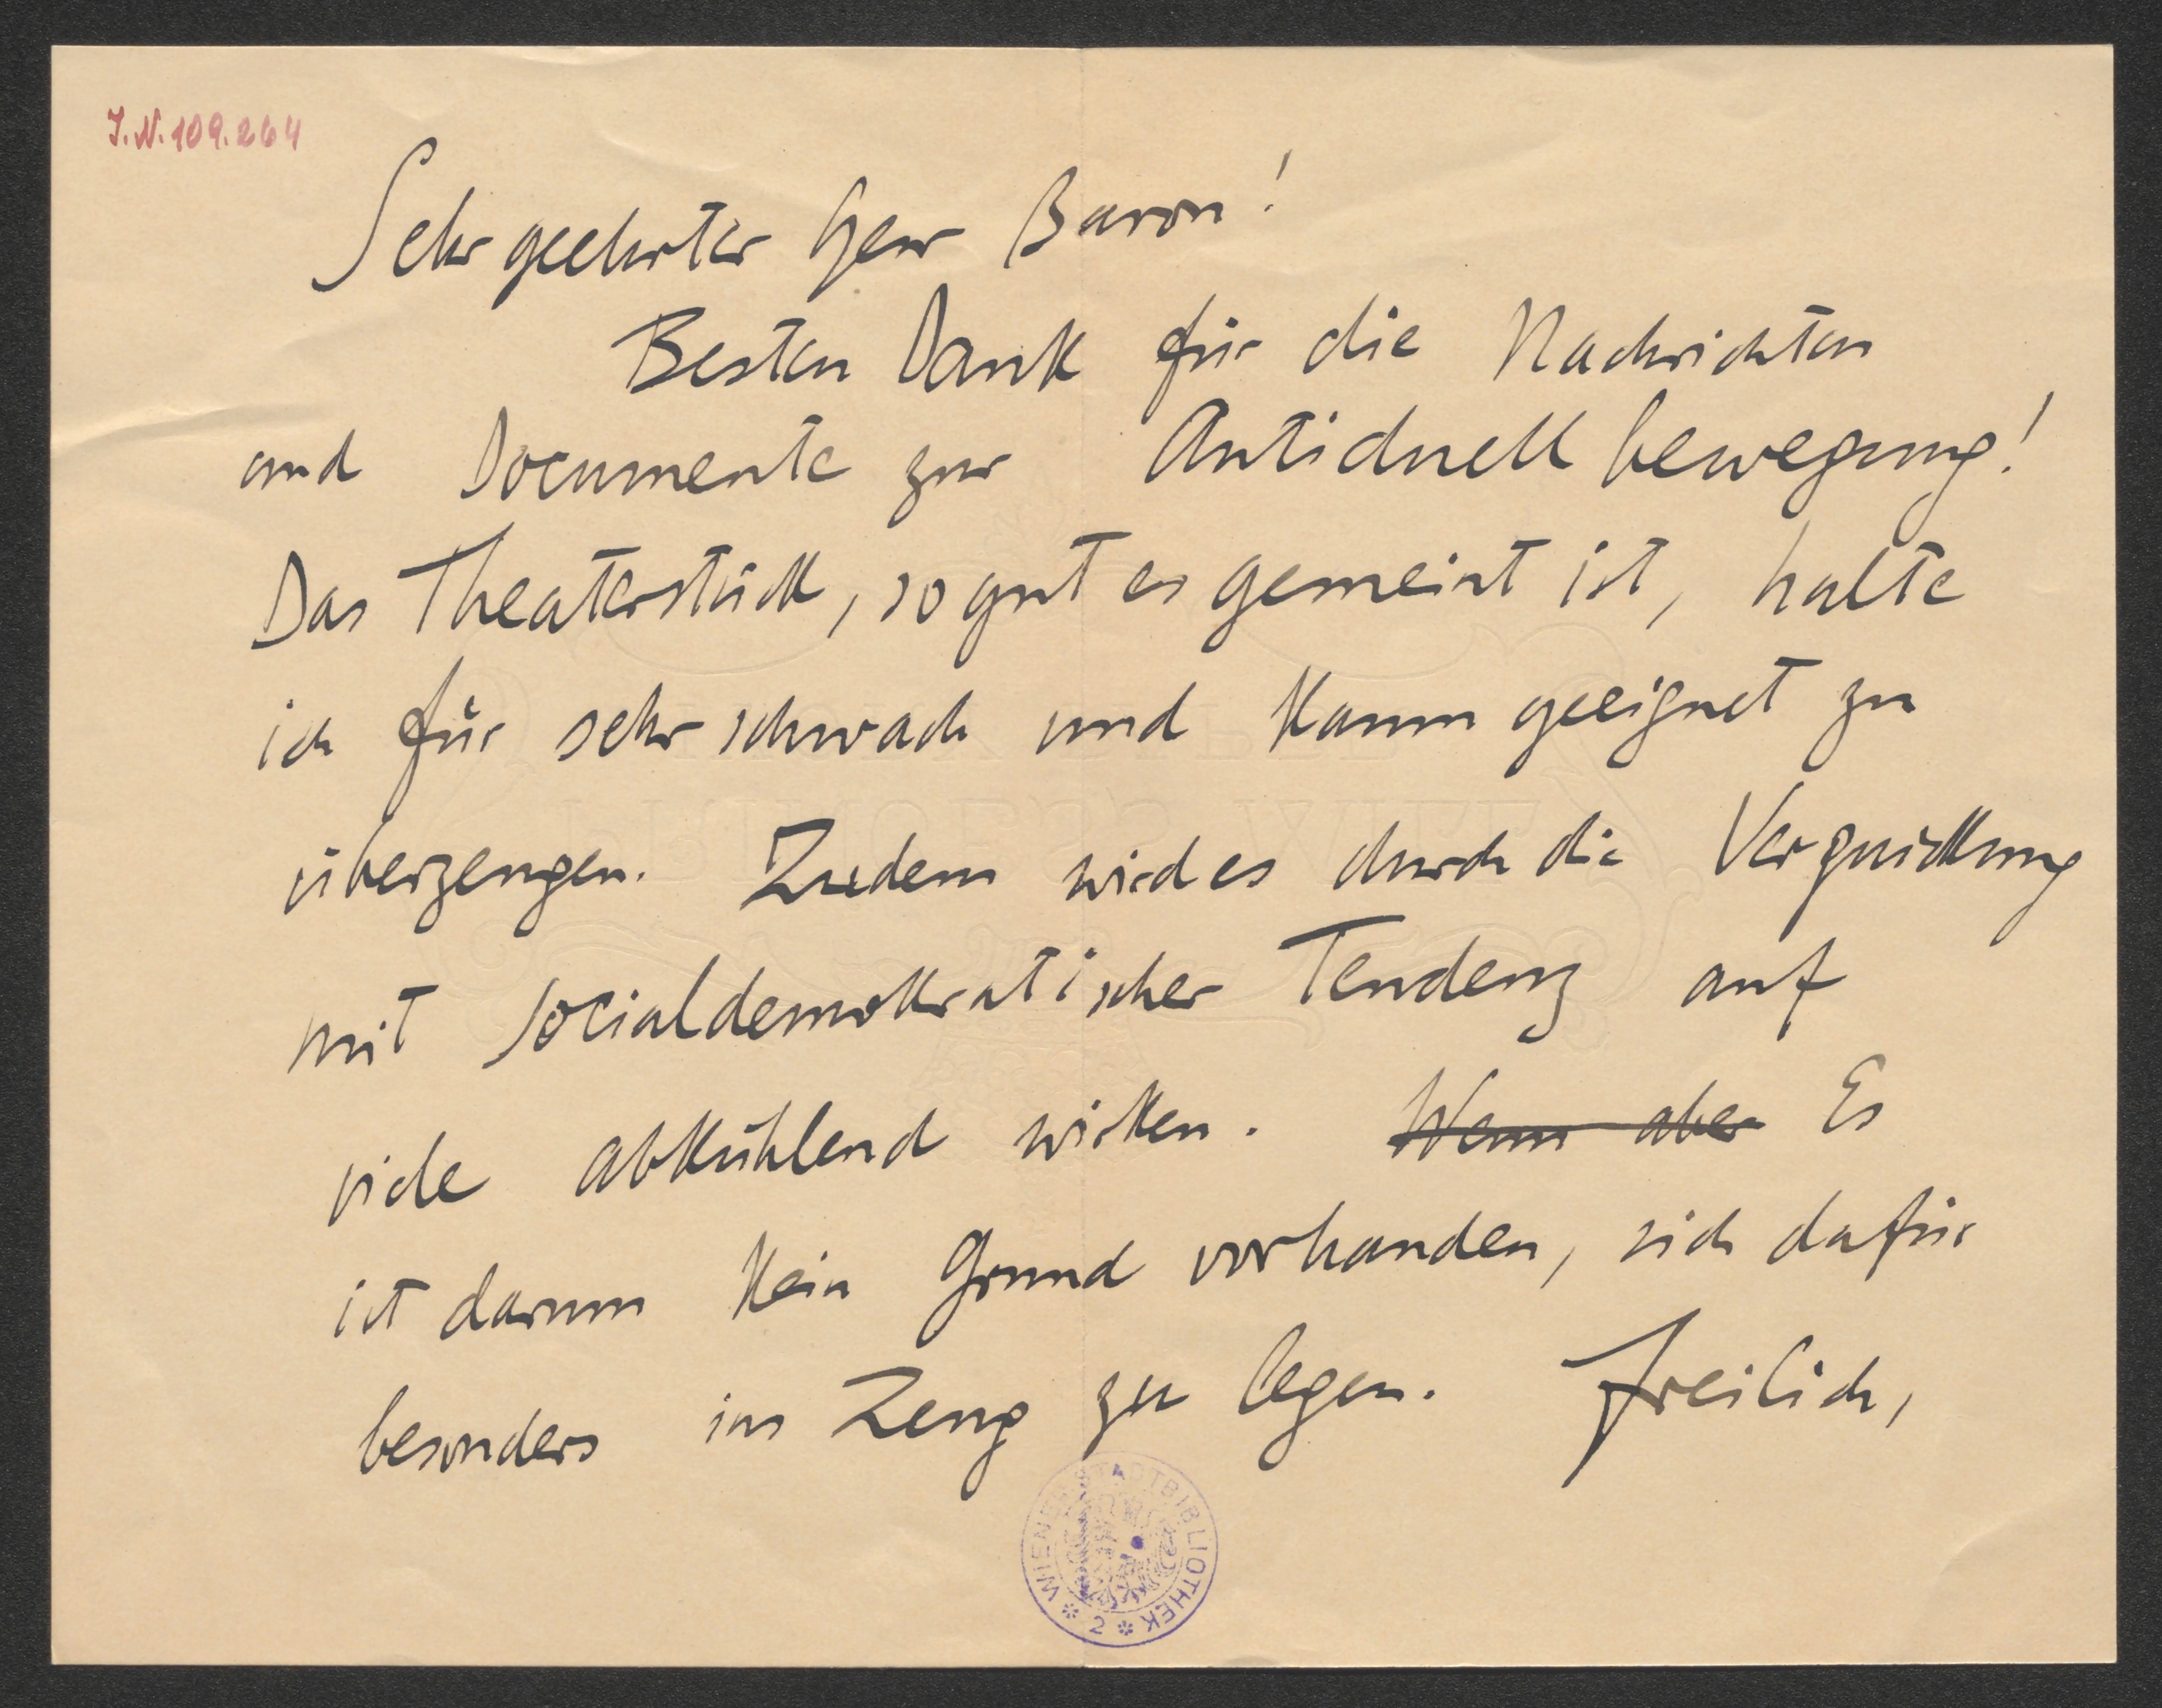 J.N. 109.264
Sehr geehrter Herr Baron!
Besten Dank für die Nachrichten
und Documente zur Antiduellbewegung!
Das Theaterstück, so gut es gemeint ist, halte
ich für sehr schwach und kaum geeignet zu
überzeugen. Zudem wird es durch die Verquickung
mit socialdemokratischer Tendenz auf
viele abkühlend wirken. Wenn aber Es
ist darum kein Grund vorhanden, sich dafür
besonders ins Zeug zu legen. Freilich,
WIENER STADTBIBLIOTHEK
* 2 *